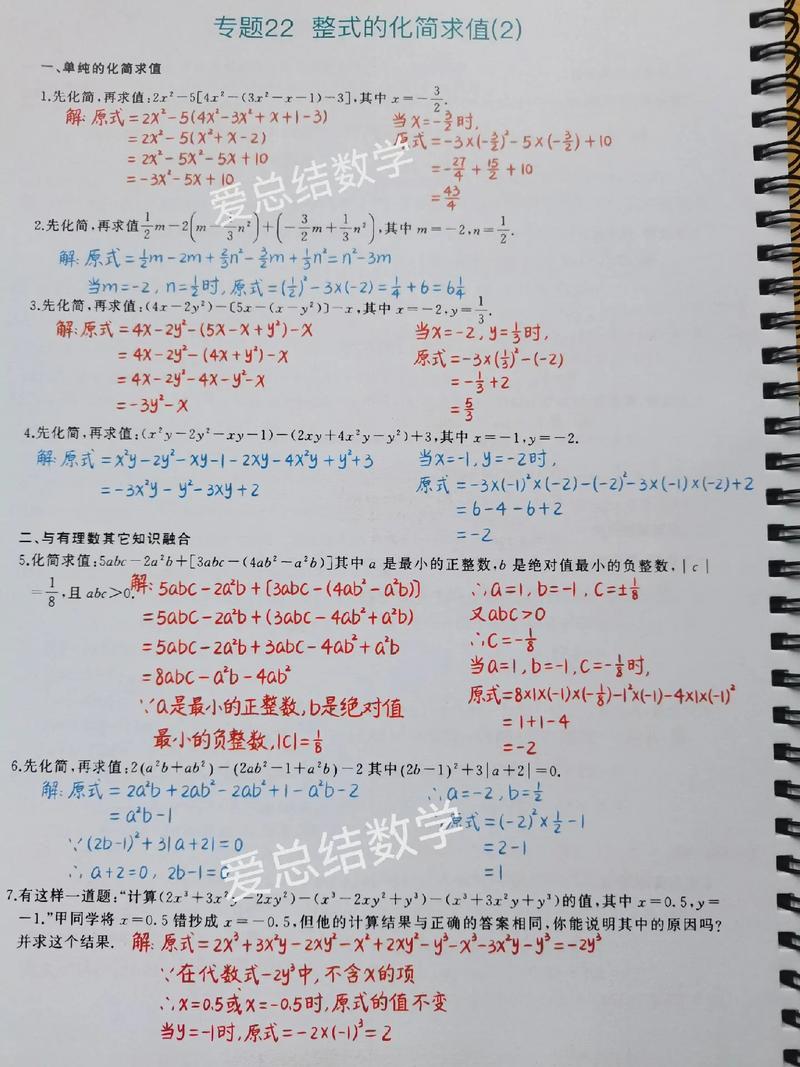 专题22 整式的化简求值(2)
一、单纯的化简求值
1.先化简,再求值:2x²-5[4x²-(3x²-x-1)-3],其中 x=-3/2.
解:原式=2x²-5(4x²-3x²+x+1-3)
=2x²-5(x²+x-2)
=2x²-5x²-5x+10
=-3x²-5x+10
当x=-3/2时,
原式=-3×(-3/2)²-5×(-3/2)+10
=-27/4+15/2+10
=43/4
爱总结数学
2.先化简,再求值1/2m-2(m-1/3n²)+(-3/2m+1/3n²),其中 m=-2,n=1/2.
解:原式=1/2m-2m+2/3n²-3/2m+1/3n²=n²-3m
当m=-2,n=1/2时,原式=(1/2)²-3×(-2)=1/4+6=6 1/4
3.先化简,再求值:(4x-2y²)-[5x-(x-y²)]-x,其中 x=-2,y=1/3.
解:原式=4x-2y²-(5x-x+y²)-x
=4x-2y²-(4x+y²)-x
=4x-2y²-4x-y²-x
=-3y²-x
当x=-2,y=1/3时,
原式=-3×(1/3)²-(-2)
=-1/3+2
=5/3
4.先化简,再求值:(x²y-2y²-xy-1)-(2xy+4x²y-y²)+3,其中 x=-1,y=-2.
解:原式=x²y-2y²-xy-1-2xy-4x²y+y²+3
=-3x²y-y²-3xy+2
当x=-1,y=-2时,
原式=-3×(-1)²×(-2)-(-2)²-3×(-1)×(-2)+2
=6-4-6+2
=-2
二、与有理数其它知识融合
5.化简求值:5abc-2a²b+[3abc-(4ab²-a²b)]其中 a 是最小的正整数,b 是绝对值最小的负整数,|c|
=1/8,且 abc>0.
解:5abc-2a²b+[3abc-(4ab²-a²b)]
=5abc-2a²b+(3abc-4ab²+a²b)
=5abc-2a²b+3abc-4ab²+a²b
=8abc-a²b-4ab²
∵a是最小的正整数,b是绝对值
最小的负整数,|c|=1/8
∴a=1,b=-1,c=±1/8
又abc>0
∴c=-1/8
当a=1,b=-1,c=-1/8时,
原式=8×1×(-1)×(-1/8)-1²×(-1)-4×1×(-1)²
=1+1-4
=-2
6.先化简,再求值:2(a²b+ab²)-(2ab²-1+a²b)-2 其中(2b-1)²+3|a+2|=0.
解:原式=2a²b+2ab²-2ab²+1-a²b-2
=a²b-1
∵(2b-1)²+3|a+2|=0
∴a+2=0,2b-1=0
∴a=-2,b=1/2
原式=(-2)²×1/2-1
=2-1
=1
爱总结数学
7.有这样一道题:“计算(2x³+3x²y-2xy²)-(x³-2xy²+y³)-(x³+3x²y+y³)的值,其中 x=0.5,y=
-1.”甲同学将 x=0.5 错抄成 x=-0.5,但他的计算结果与正确的答案相同,你能说明其中的原因吗?
并求这个结果.
解:原式=2x³+3x²y-2xy²-x³+2xy²-y³-x³-3x²y-y³=-2y³
∵在代数式-2y³中,不含x的项
∴x=0.5或x=-0.5时,原式的值不变
当y=-1时,原式=-2×(-1)³=2